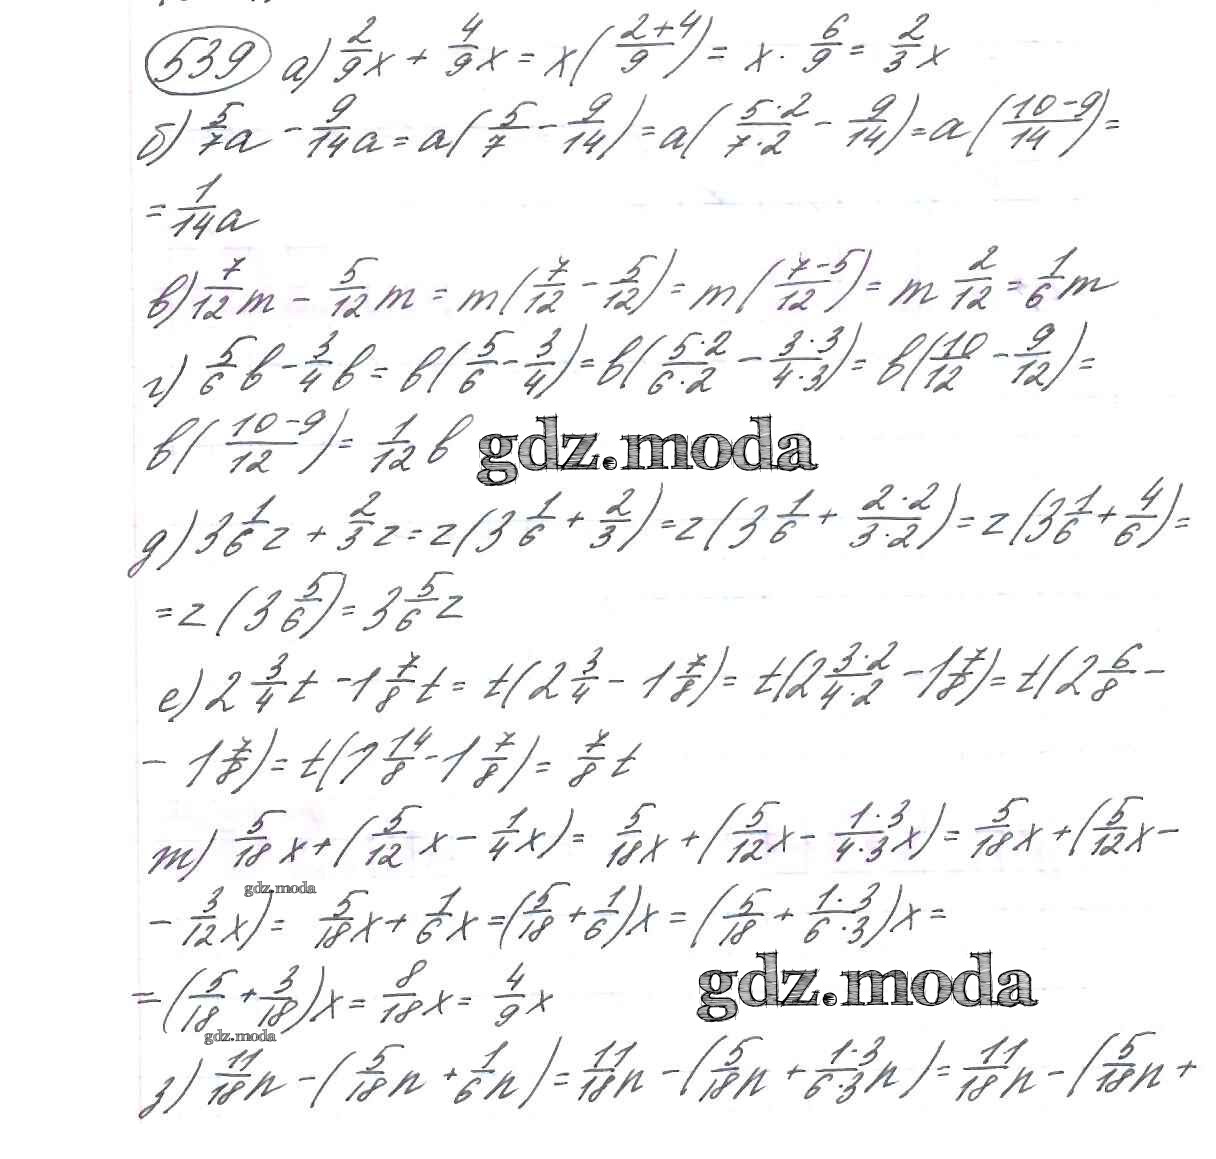 539 а) 2/9 x + 4/9 x = x((2+4)/9) = x · 6/9 = 2/3 x
б) 5/7 a - 9/14 a = a(5/7 - 9/14) = a((5·2)/(7·2) - 9/14) = a((10-9)/14) =
= 1/14 a
в) 7/12 m - 5/12 m = m(7/12 - 5/12) = m((7-5)/12) = m 2/12 = 1/6 m
г) 5/6 b - 3/4 b = b(5/6 - 3/4) = b((5·2)/(6·2) - (3·3)/(4·3)) = b(10/12 - 9/12) =
b((10-9)/12) = 1/12 b
gdz.moda
д) 3 1/6 z + 2/3 z = z(3 1/6 + 2/3) = z(3 1/6 + (2·2)/(3·2)) = z(3 1/6 + 4/6) =
= z(3 5/6) = 3 5/6 z
е) 2 3/4 t - 1 7/8 t = t(2 3/4 - 1 7/8) = t(2 (3·2)/(4·2) - 1 7/8) = t(2 6/8 -
- 1 7/8) = t(1 14/8 - 1 7/8) = 7/8 t
т) 5/18 x + (5/12 x - 1/4 x) = 5/18 x + (5/12 x - (1·3)/(4·3) x) = 5/18 x + (5/12 x -
gdz.moda
- 3/12 x) = 5/18 x + 1/6 x = (5/18 + 1/6) x = (5/18 + (1·3)/(6·3)) x =
= (5/18 + 3/18) x = 8/18 x = 4/9 x
gdz.moda
gdz.moda
з) 11/18 n - (5/18 n + 1/6 n) = 11/18 n - (5/18 n + (1·3)/(6·3) n) = 11/18 n - (5/18 n +